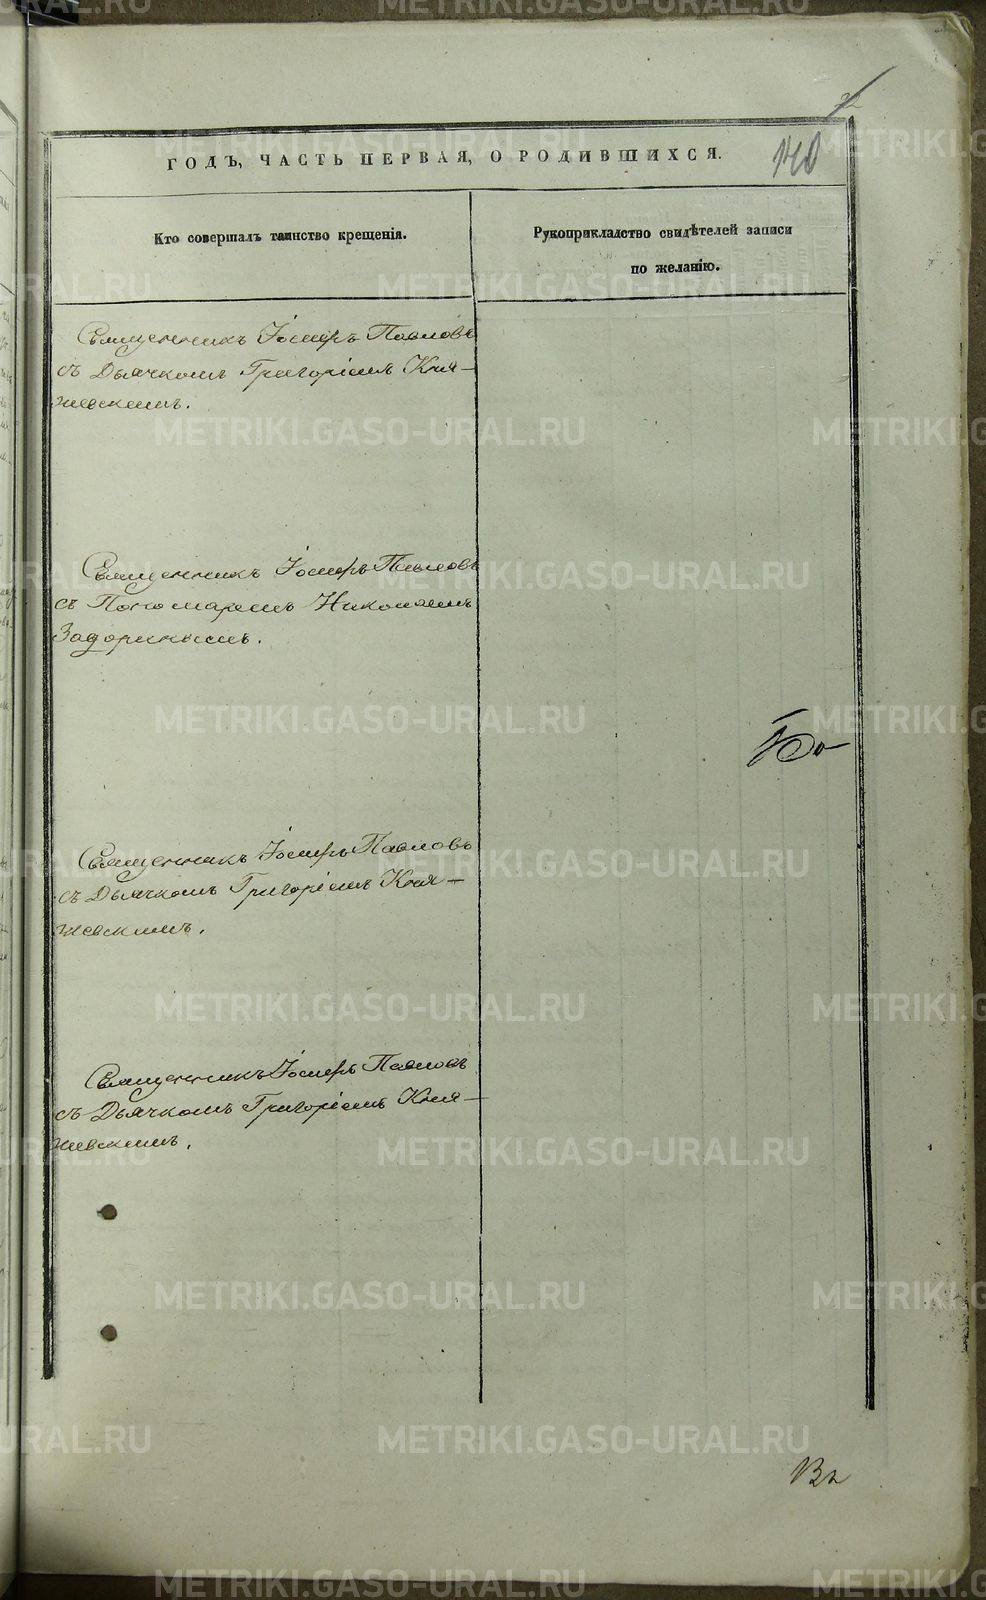 140
ГОДЪ, ЧАСТЬ ПЕРВАЯ, О РОДИВШИХСЯ.
Кто совершалъ таинство крещенія.
Рукоприкладство свидѣтелей записи
по желанію.
Священникъ Іосифъ Павловъ
съ Дьячкомъ Григоріемъ Кня-
жевскимъ.
Священникъ Іосифъ Павловъ
съ Пономаремъ Николаемъ
Задоринымъ.
Священникъ Іосифъ Павловъ
съ Дьячкомъ Григоріемъ Кня-
жевскимъ.
Священникъ Іосифъ Павловъ
съ Дьячкомъ Григоріемъ Кня-
жевскимъ.
METRIKI.GASO-URAL.RU